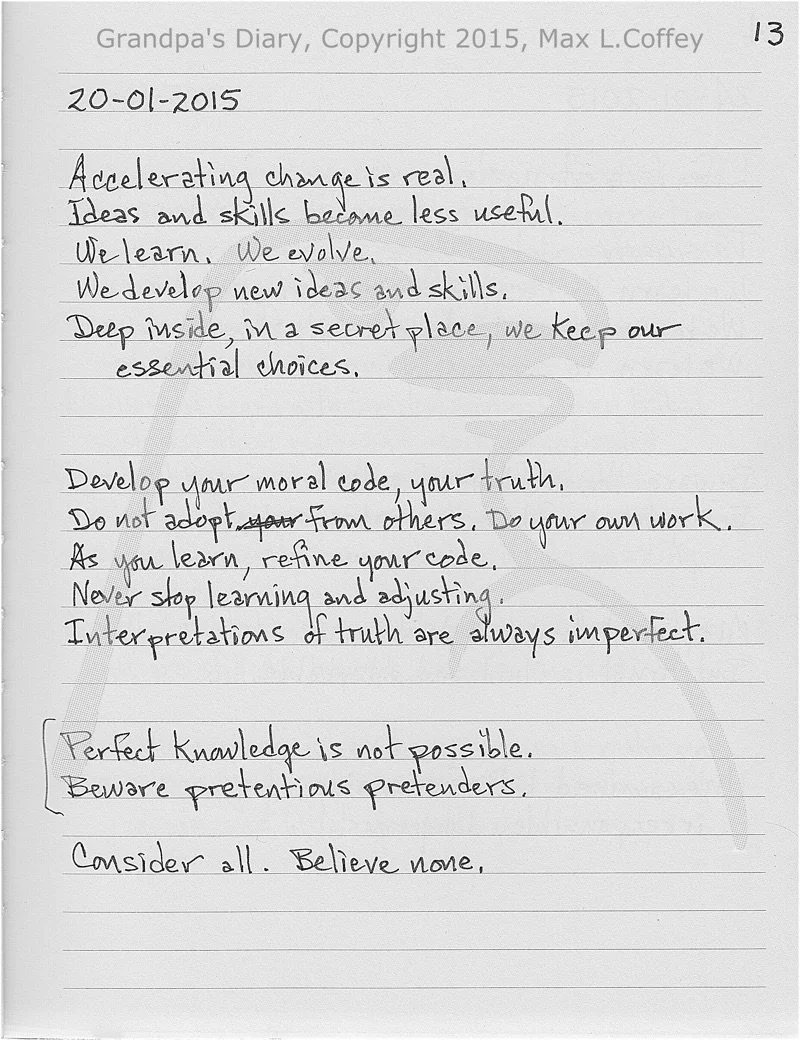 Grandpa's Diary, Copyright 2015, Max L.Coffey
13
20-01-2015
Accelerating change is real.
Ideas and skills become less useful.
We learn. We evolve.
We develop new ideas and skills.
Deep inside, in a secret place, we keep our
essential choices.
Develop your moral code, your truth.
Do not adopt your from others. Do your own work.
As you learn, refine your code.
Never stop learning and adjusting.
Interpretations of truth are always imperfect.
Perfect knowledge is not possible.
Beware pretentious pretenders.
Consider all. Believe none.